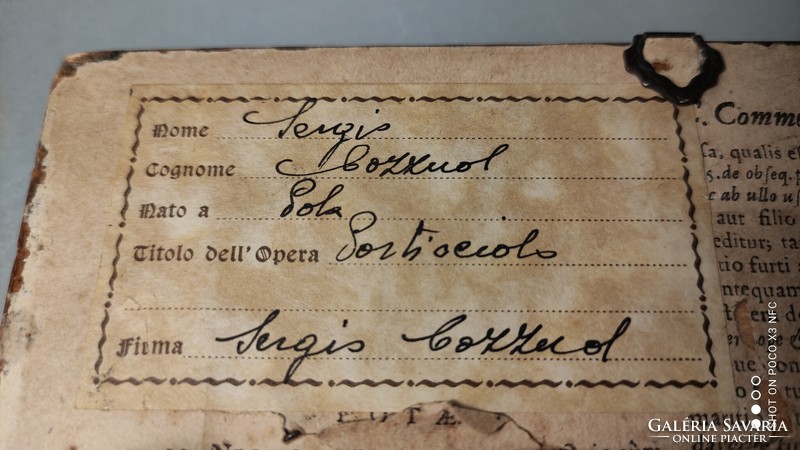 Nome Sergio
Cognome Cozzuol
Nato a Pola
Titolo dell'Opera Porticciolo
Firma Sergio Cozzuol
. Comme
sa, qualis e
s. de obseq. p
c ab ullo us
aut filio
editur; ta
tio furti a
ntequam
P U T Æ.
mariti
SHOT ON POCO X3 NFC
GALÉRIA SAVARIA
ONLINE PIACTÉR